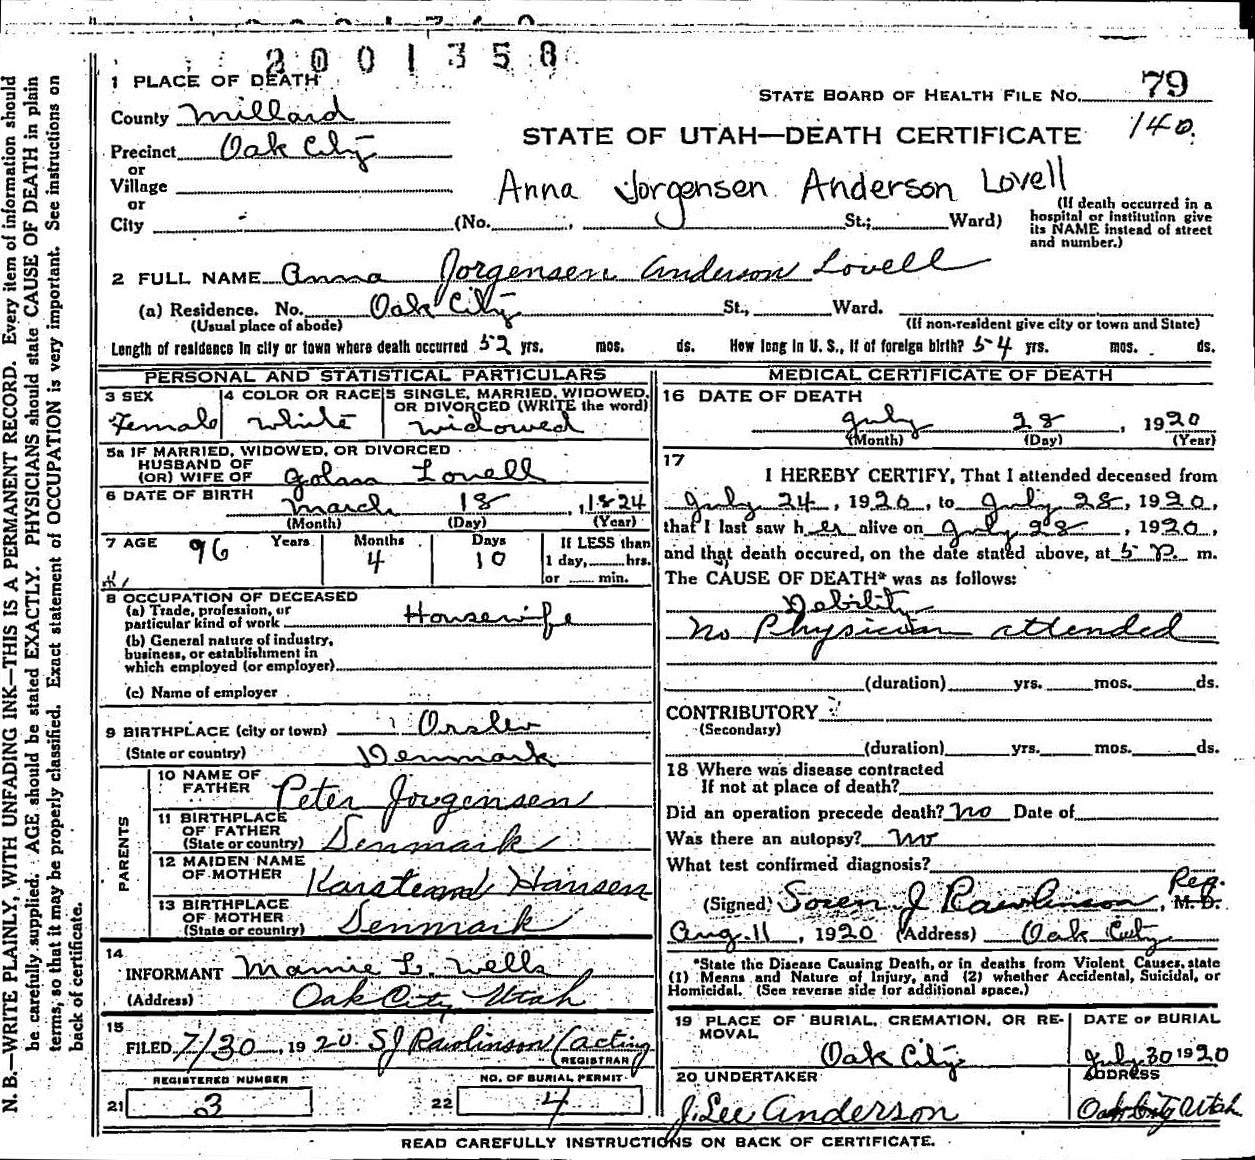 2001358
1 PLACE OF DEATH
STATE BOARD OF HEALTH FILE NO. 79
County Millard
140.
STATE OF UTAH—DEATH CERTIFICATE
Precinct Oak City
or
Village
Anna Jorgensen Anderson Lovell
or
City (No. , St.; Ward)
(If death occurred in a hospital or institution give its NAME instead of street and number.)
2 FULL NAME Anna Jorgensen Anderson Lovell
(a) Residence. No. Oak City St., Ward.
(Usual place of abode) (If non-resident give city or town and State)
Length of residence in city or town where death occurred 52 yrs. mos. ds. How long in U. S., if of foreign birth? 54 yrs. mos. ds.
PERSONAL AND STATISTICAL PARTICULARS
3 SEX
Female
4 COLOR OR RACE
White
5 SINGLE, MARRIED, WIDOWED,
OR DIVORCED (WRITE the word)
Widowed
5a IF MARRIED, WIDOWED, OR DIVORCED
HUSBAND OF
(OR) WIFE OF Lovell
6 DATE OF BIRTH March 18, 1824
(Month) (Day) (Year)
7 AGE 96 Years 4 Months 10 Days
If LESS than
1 day, hrs.
or min.
8 OCCUPATION OF DECEASED
(a) Trade, profession, or
particular kind of work Housewife
(b) General nature of industry,
business, or establishment in
which employed (or employer)
(c) Name of employer
9 BIRTHPLACE (city or town) Orslev
(State or country) Denmark
PARENTS
10 NAME OF
FATHER Peter Jorgensen
11 BIRTHPLACE
OF FATHER
(State or country) Denmark
12 MAIDEN NAME
OF MOTHER Hansen
13 BIRTHPLACE
OF MOTHER
(State or country) Denmark
14
INFORMANT Mamie L. Wells
(Address) Oak City Utah
15
FILED 7/30, 1920. S J Rawlinson (acting
REGISTRAR
REGISTERED NUMBER
21 3
NO. OF BURIAL PERMIT
22 4
MEDICAL CERTIFICATE OF DEATH
16 DATE OF DEATH
July 28, 1920
(Month) (Day) (Year)
17
I HEREBY CERTIFY, That I attended deceased from
July 24, 1920, to July 28, 1920,
that I last saw h er alive on July 28, 1920,
and that death occured, on the date stated above, at 5 P. m.
The CAUSE OF DEATH* was as follows:
Debility
No Physician attended
(duration) yrs. mos. ds.
CONTRIBUTORY
(Secondary)
(duration) yrs. mos. ds.
18 Where was disease contracted
If not at place of death?
Did an operation precede death? No Date of
Was there an autopsy? No
What test confirmed diagnosis?
(Signed) Soren J Rawlinson, Reg. M. D.
Aug. 11, 1920 (Address) Oak City
*State the Disease Causing Death, or in deaths from Violent Causes, state
(1) Means and Nature of Injury, and (2) whether Accidental, Suicidal, or
Homicidal. (See reverse side for additional space.)
19 PLACE OF BURIAL, CREMATION, OR RE-
MOVAL
Oak City
DATE OF BURIAL
July 30 1920
20 UNDERTAKER
J. Lee Anderson
ADDRESS
Oak City Utah
READ CAREFULLY INSTRUCTIONS ON BACK OF CERTIFICATE.
N. B.—WRITE PLAINLY, WITH UNFADING INK—THIS IS A PERMANENT RECORD. Every item of information should
be carefully supplied. AGE should be stated EXACTLY. PHYSICIANS should state CAUSE OF DEATH in plain
terms, so that it may be properly classified. Exact statement of OCCUPATION is very important. See instructions on
back of certificate.